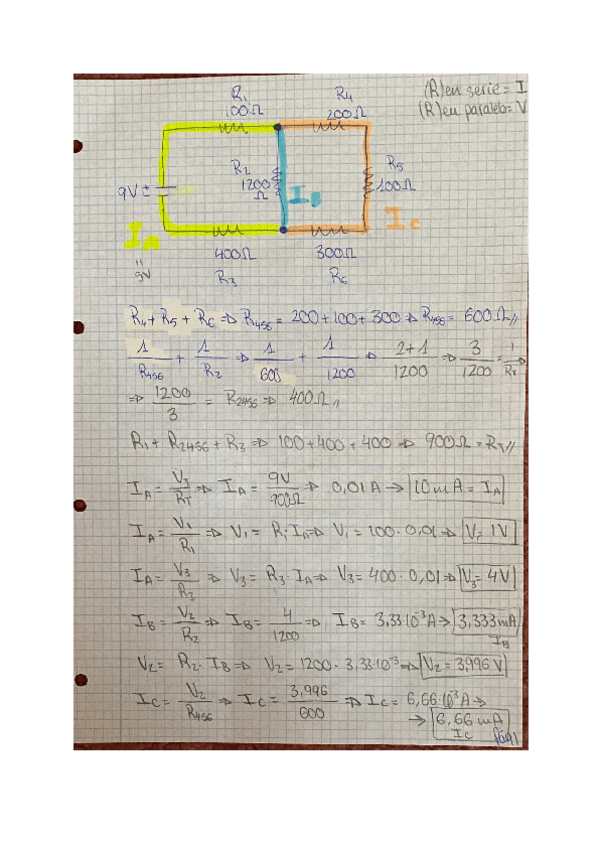 (R) en serie = I
(R) en paralelo = V
R₁ 100Ω R₄ 200Ω
9V ± R₂ 1200 Ω I_B R₅ 100Ω
I_A I_C
" 9V 400Ω 300Ω
R₃ R₆
R₄ + R₅ + R₆ ⇒ R₄₅₆ = 200 + 100 + 300 ⇒ R₄₅₆ = 600Ω //
1/R₄₅₆ + 1/R₂ ⇒ 1/600 + 1/1200 ⇒ 2+1/1200 ⇒ 3/1200 = 1/R_T ⇒
⇒ 1200/3 = R₂₄₅₆ ⇒ 400Ω //
R₁ + R₂₄₅₆ + R₃ ⇒ 100 + 400 + 400 ⇒ 900Ω = R_T //
I_A = V_T/R_T ⇒ I_A = 9V/900Ω ⇒ 0,01 A → 10 mA = I_A
I_A = V₁/R₁ ⇒ V₁ = R₁·I_A ⇒ V₁ = 100·0,01 ⇒ V₁ = 1V
I_A = V₃/R₃ ⇒ V₃ = R₃·I_A ⇒ V₃ = 400·0,01 ⇒ V₃ = 4V
I_B = V₂/R₂ ⇒ I_B = 4/1200 ⇒ I_B = 3,33·10⁻³ A → 3,333 mA
I_B
V₂ = R₂·I_B ⇒ V₂ = 1200·3,33·10⁻³ ⇒ V₂ = 3,996 V
I_C = V₂/R₄₅₆ ⇒ I_C = 3,996/600 ⇒ I_C = 6,66·10⁻³ A →
→ 6,66 mA
I_C